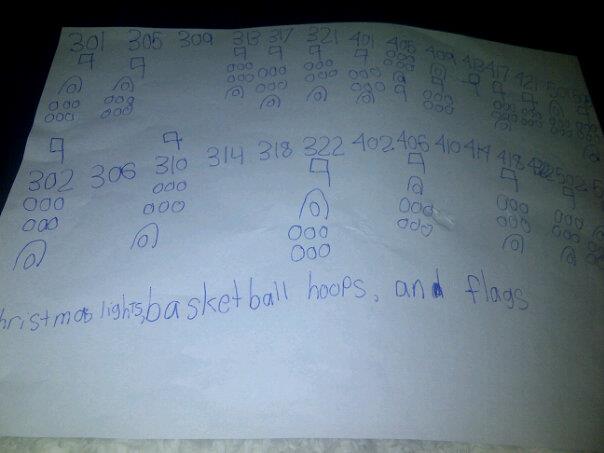 301 305 309 313 317 321 401 405 409 413 417 421
302 306 310 314 318 322 402 406 410 414 418 422 502
christmas lights, basketball hoops, and flags